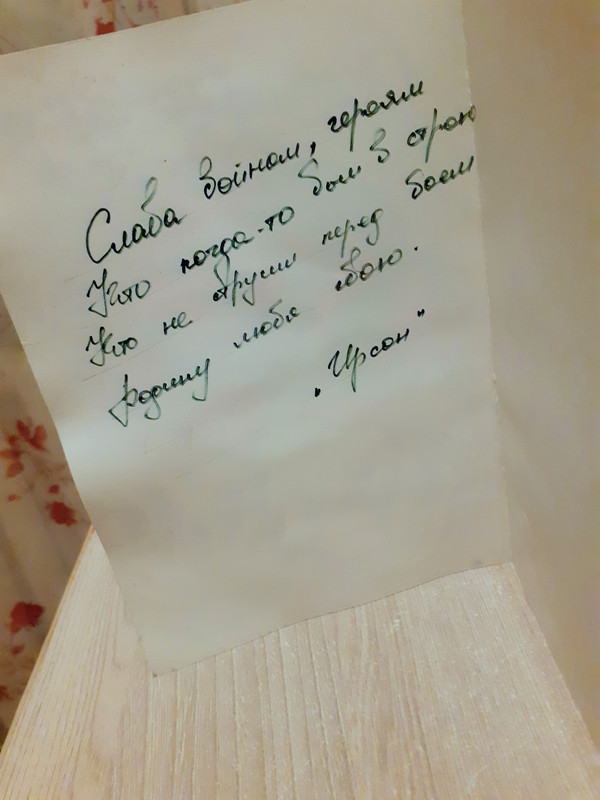 Слава воинам, героям
Кто когда-то был в строю
Кто не струсил перед боем
Родину любя свою.
„Ирсон"